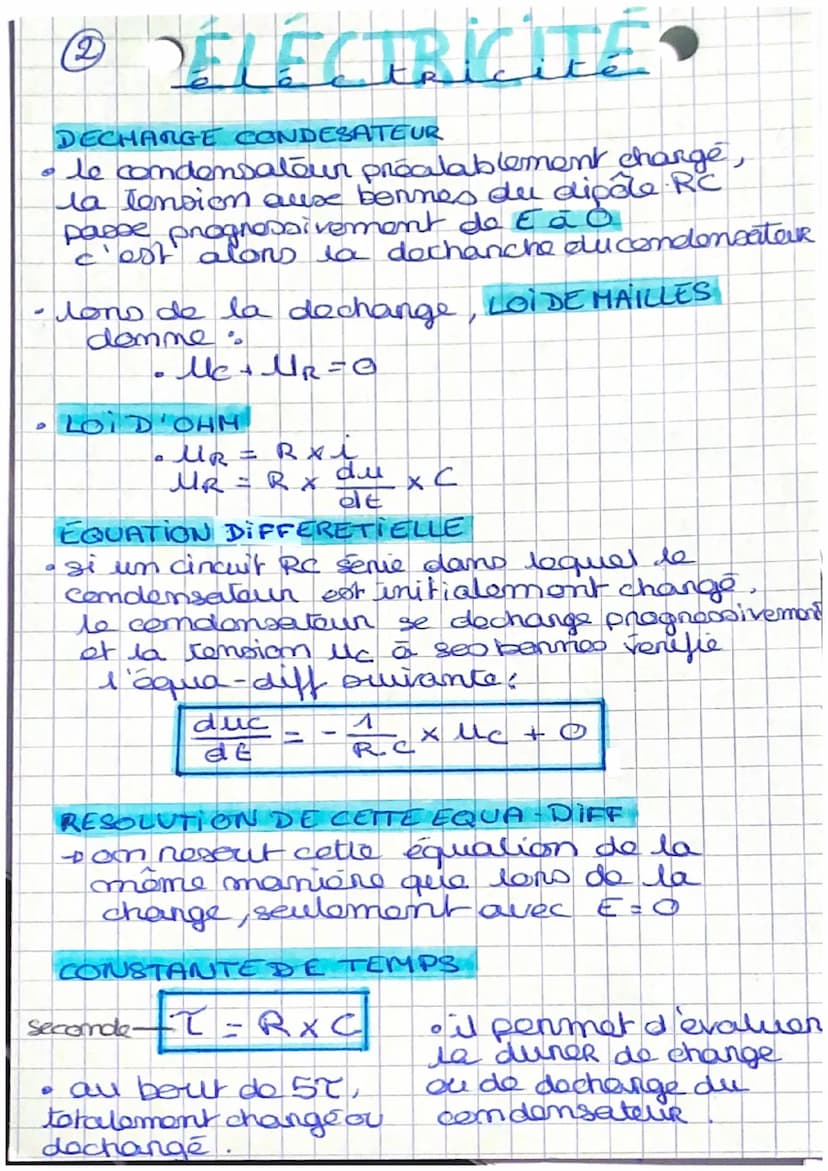 ②
ÉLÉCTRICITÉ
électricité
DECHARGE CONDESATEUR
• le condensateur préalablement chargé,
la tension aux bornes du dipôle RC
passe progressivement de E à 0
c'est alors la decharche du condensateur
- lors de la decharge, LOI DE MAILLES
donne :
• Uc + UR = 0
• LOI D'OHM
• UR = R x i
UR = R x du/dt x C
ÉQUATION DIFFERETIELLE
• si un circuit RC serie dans lequel le
condensateur est initialement chargé.
le condensateur se decharge progressivement
et la tension Uc à ses bornes verifie
l'équa-diff suivante :
duc/dt = - 1/R.C x Uc + 0
RESOLUTION DE CETTE EQUA-DIFF
→ on resout cette équation de la
même manière que lors de la
charge, seulement avec E = 0
CONSTANTE DE TEMPS
seconde - τ = R x C
• au bout de 5τ,
totalement chargé ou
dechargé.
• il permet d'evaluer
la durer de charge
ou de decharge du
condensateur.